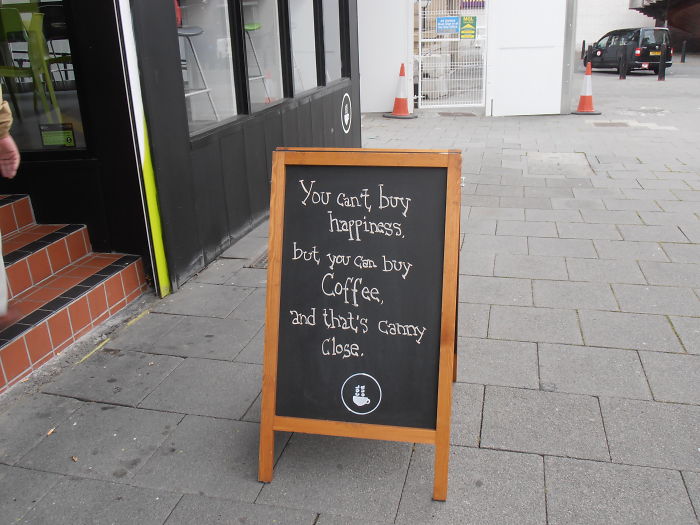 You can't buy
happiness,
but you can buy
Coffee,
and that's canny
Close.